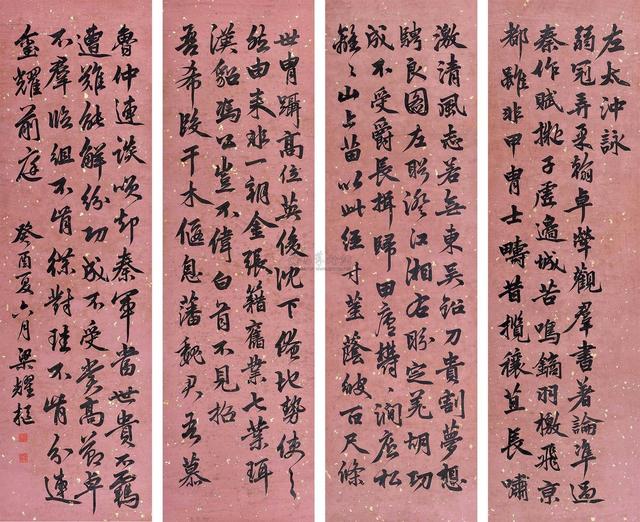 左太沖詠
弱冠弄柔翰卓犖觀羣書著論準過
秦作賦擬子虛邊城苦鳴鏑羽檄飛京
都雖非甲冑士疇昔攬穰苴長嘯
激清風志若無東吳鉛刀貴割夢想
騁良圖左眄澄江湘右盼定羌胡功
成不受爵長揖歸田廬鬱〻澗底松
離〻山上苗以此徑寸莖蔭彼百尺條
世冑躡高位英俊沈下僚地勢使之
然由來非一朝金張籍舊業七葉珥
漢貂馮公豈不偉白首不見招
吾希段干木偃息藩魏君吾慕
魯仲連談笑却秦軍當世貴不羈
遭難能解紛功成不受賞高節卓
不羣臨組不肯緤對珪不肯分連
璽耀前庭
癸酉夏六月梁耀樞